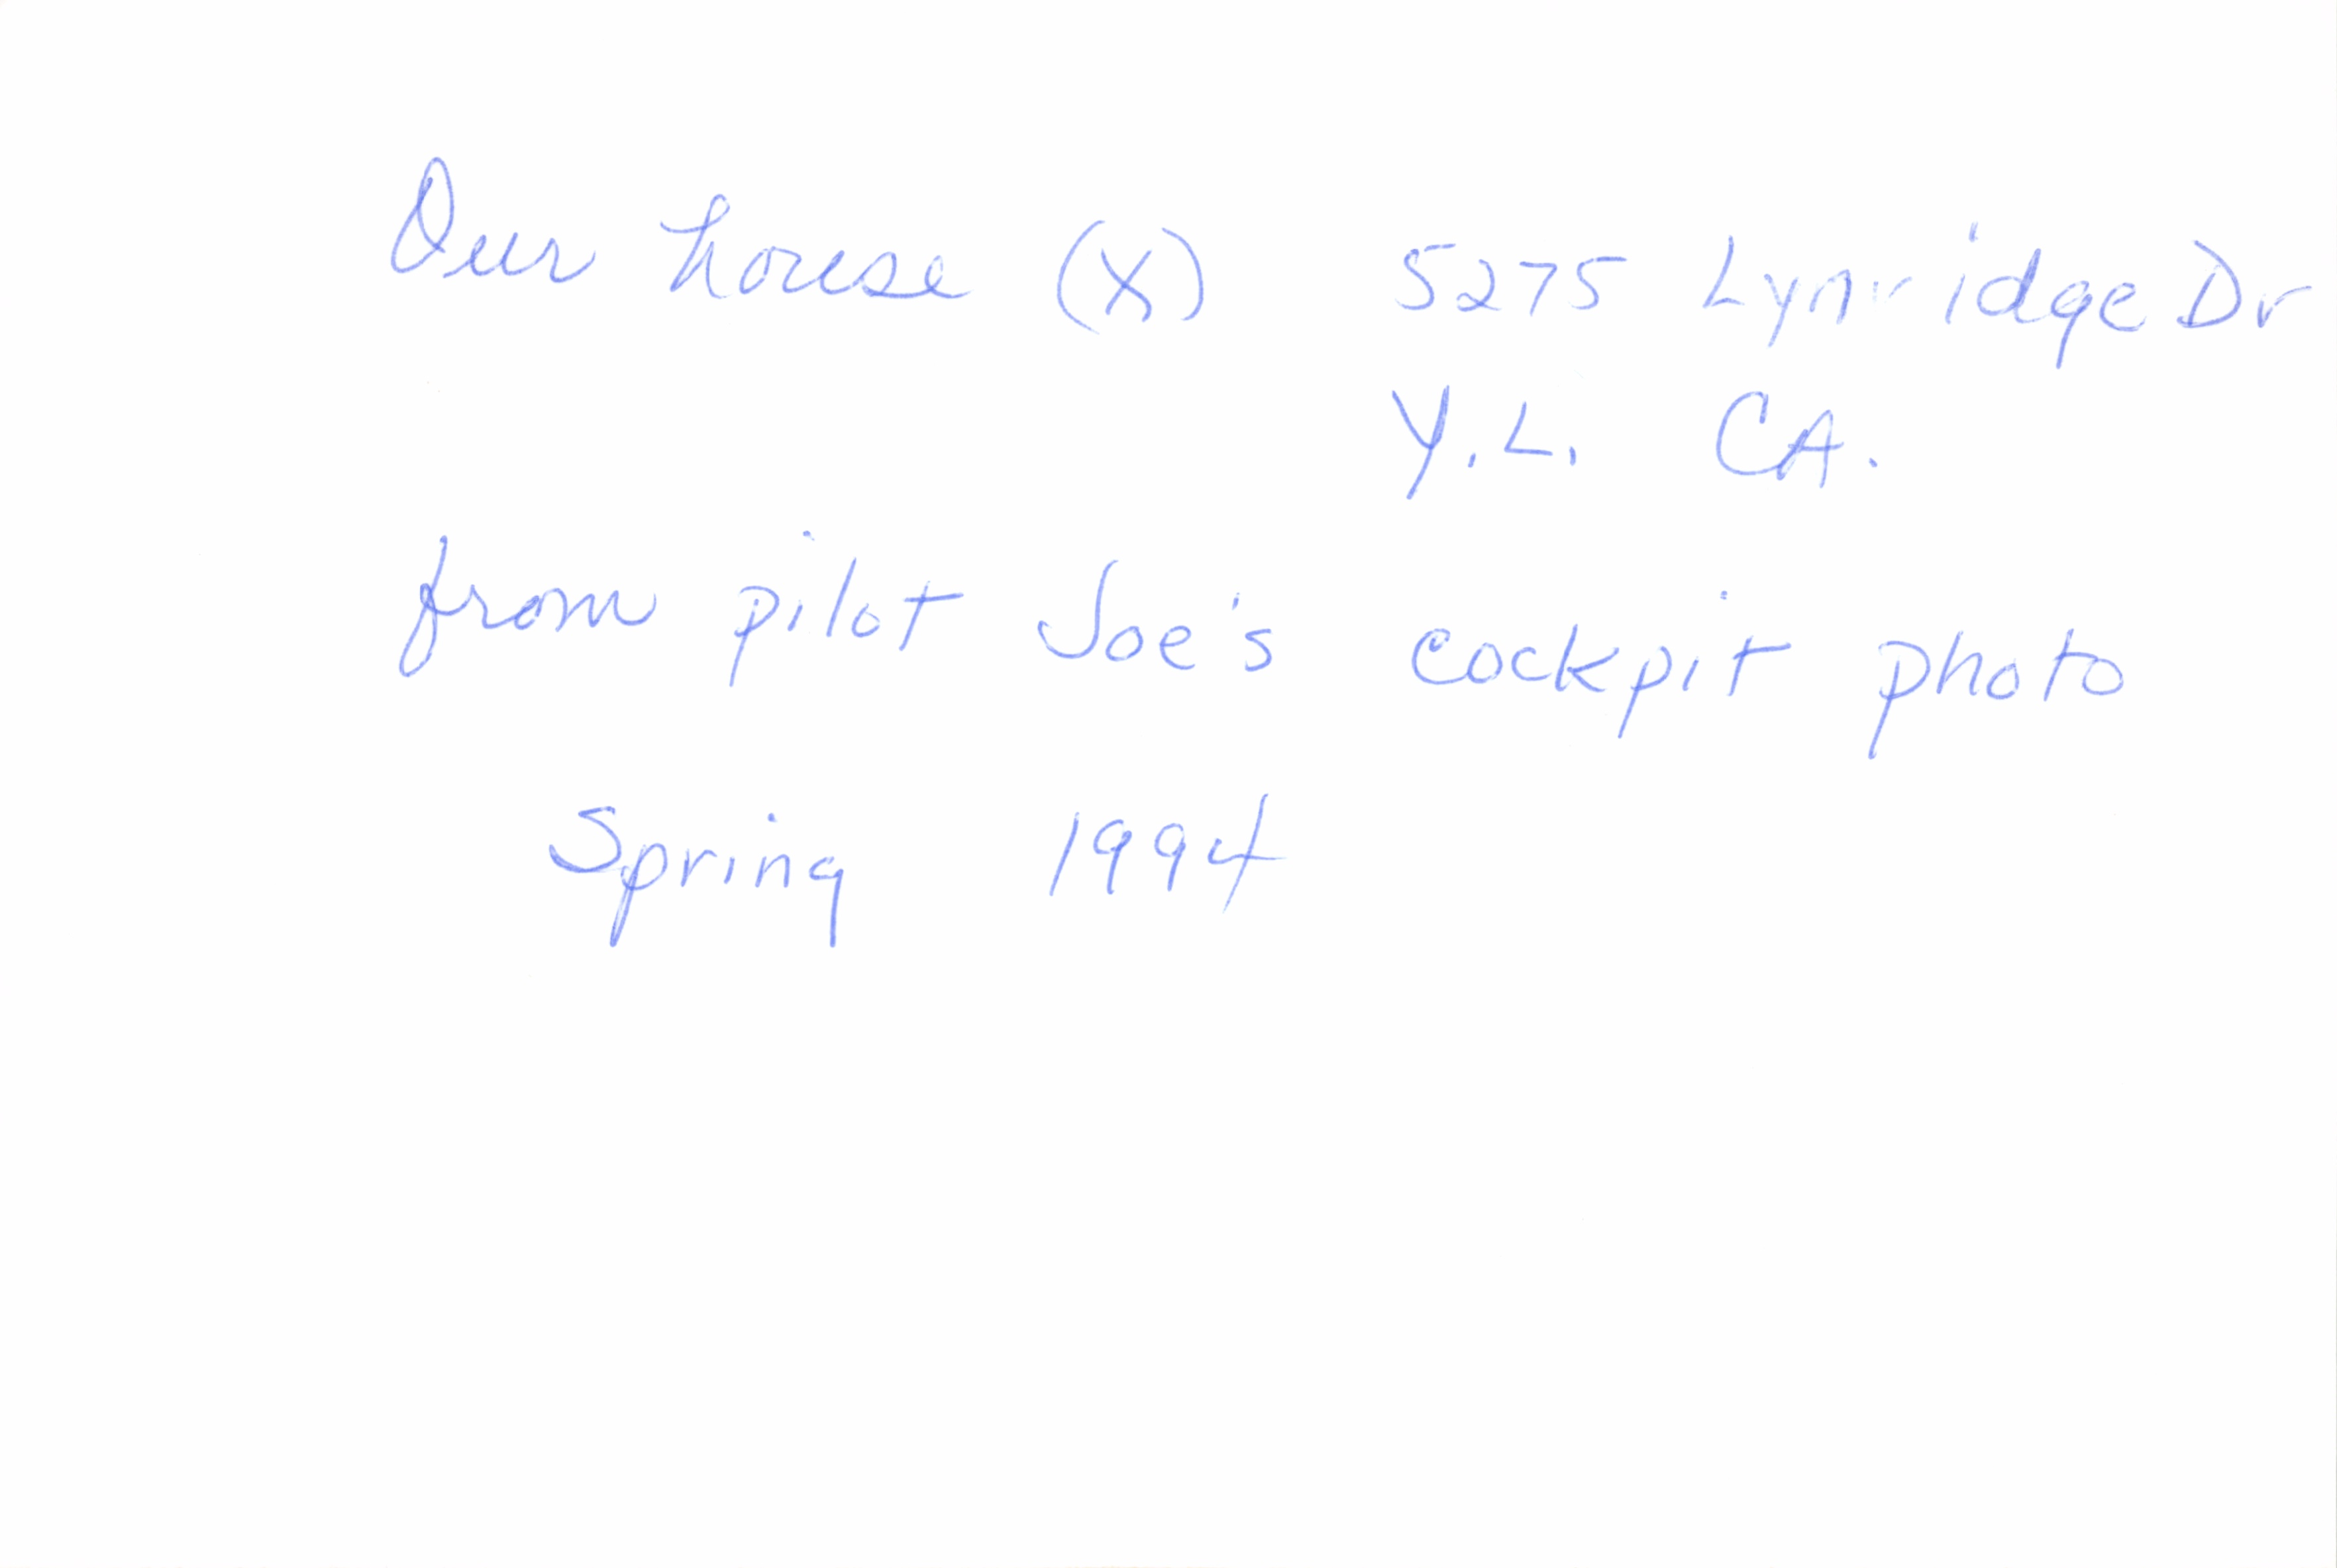 Our house (X) 5275 Lynridge Dr
Y.L. CA.
from pilot Joe's cockpit photo
Spring 1994